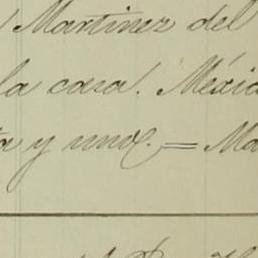 Martinez del
la casa. Méxic
ta y uno. = Ma